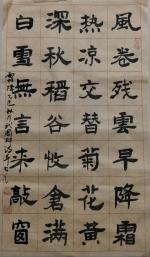 風卷残雲早降霜
热凉交替菊花黄
深秋稻谷收倉滿
白雪無言来敲窗